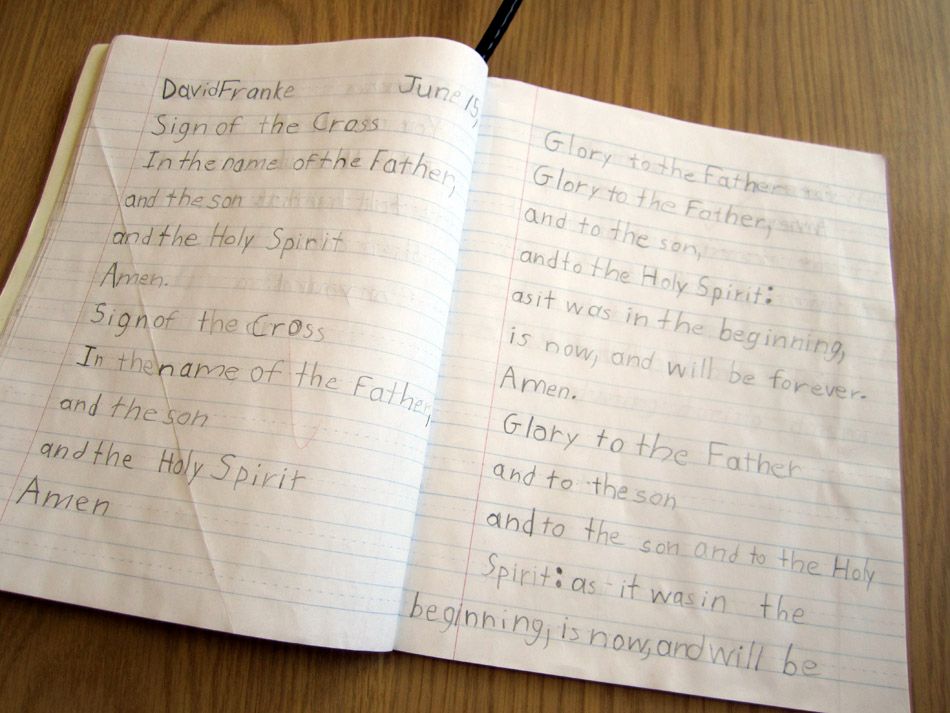 David Franke June 15,
Sign of the Cross
In the name of the Father,
and the son
and the Holy Spirit
Amen.
Sign of the Cross
In the name of the Father,
and the son
and the Holy Spirit
Amen
Glory to the Father
Glory to the Father,
and to the son,
and to the Holy Spirit:
as it was in the beginning,
is now, and will be forever.
Amen.
Glory to the Father
and to the son
and to the son and to the Holy
Spirit: as it was in the
beginning, is now, and will be